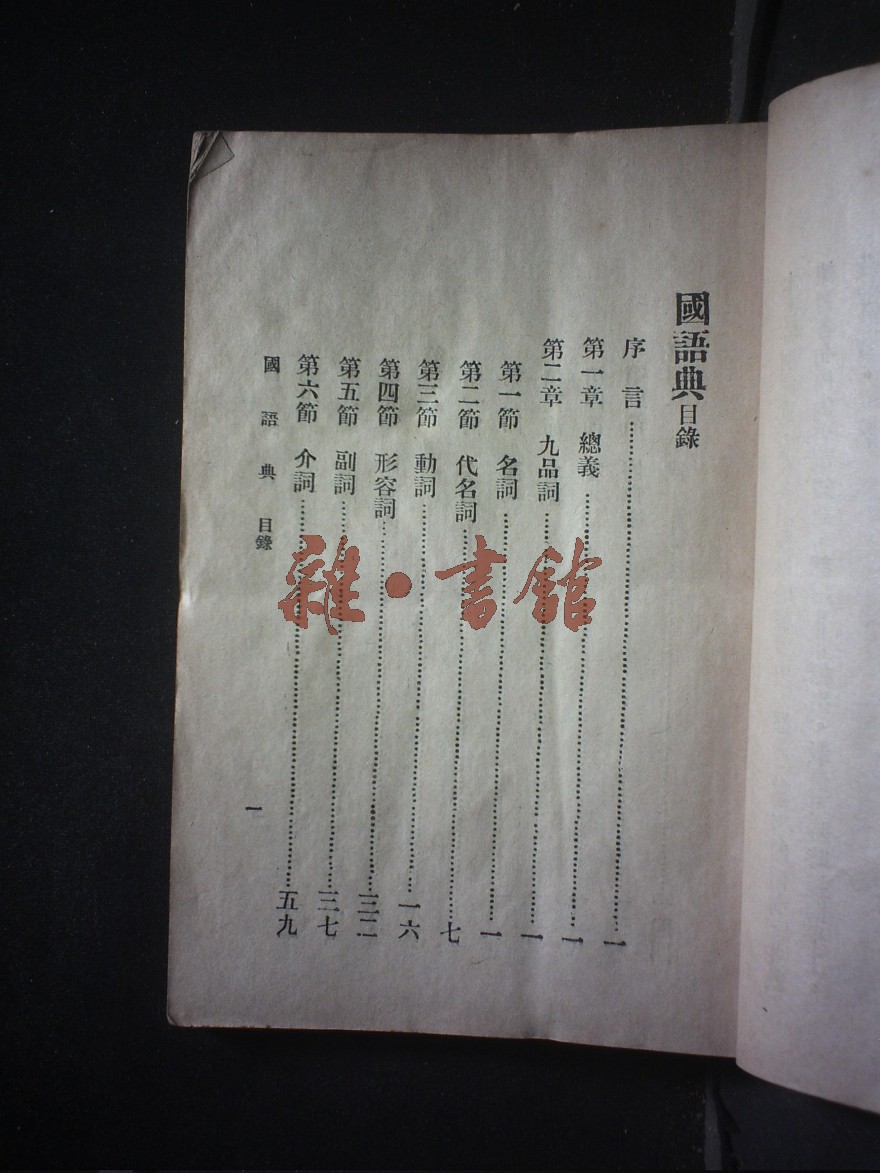 國語典目錄
序言……一
第一章 總義……一
第二章 九品詞……一
第一節 名詞……一
第二節 代名詞……七
第三節 動詞……一六
第四節 形容詞……三二
第五節 副詞……三七
第六節 介詞……五九
國語典 目錄 一
雜·書館